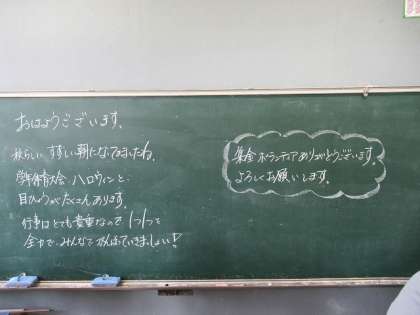 おはようございます。
秋らしい すずしい朝になってきましたね。
学年体育大会、ハロウィンと
目ひょうがたくさんあります。
行事はとても貴重なので 1つ1つを
全力で みんなで がんばっていきましょい!
募金ボランティアありがとうございます。
よろしくお願いします。